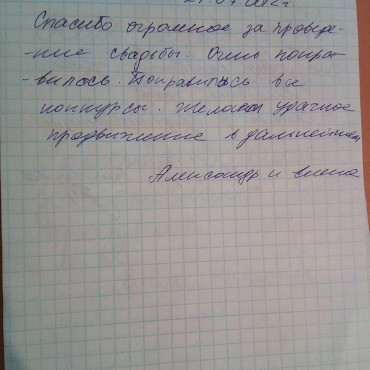 Спасибо огромное за проведе-
-ние свадьбы. Очень понра-
-вилось. Понравилось вы
конкурсы. Желаем удачное
продвижение в дальнейшем
Александр и Елена